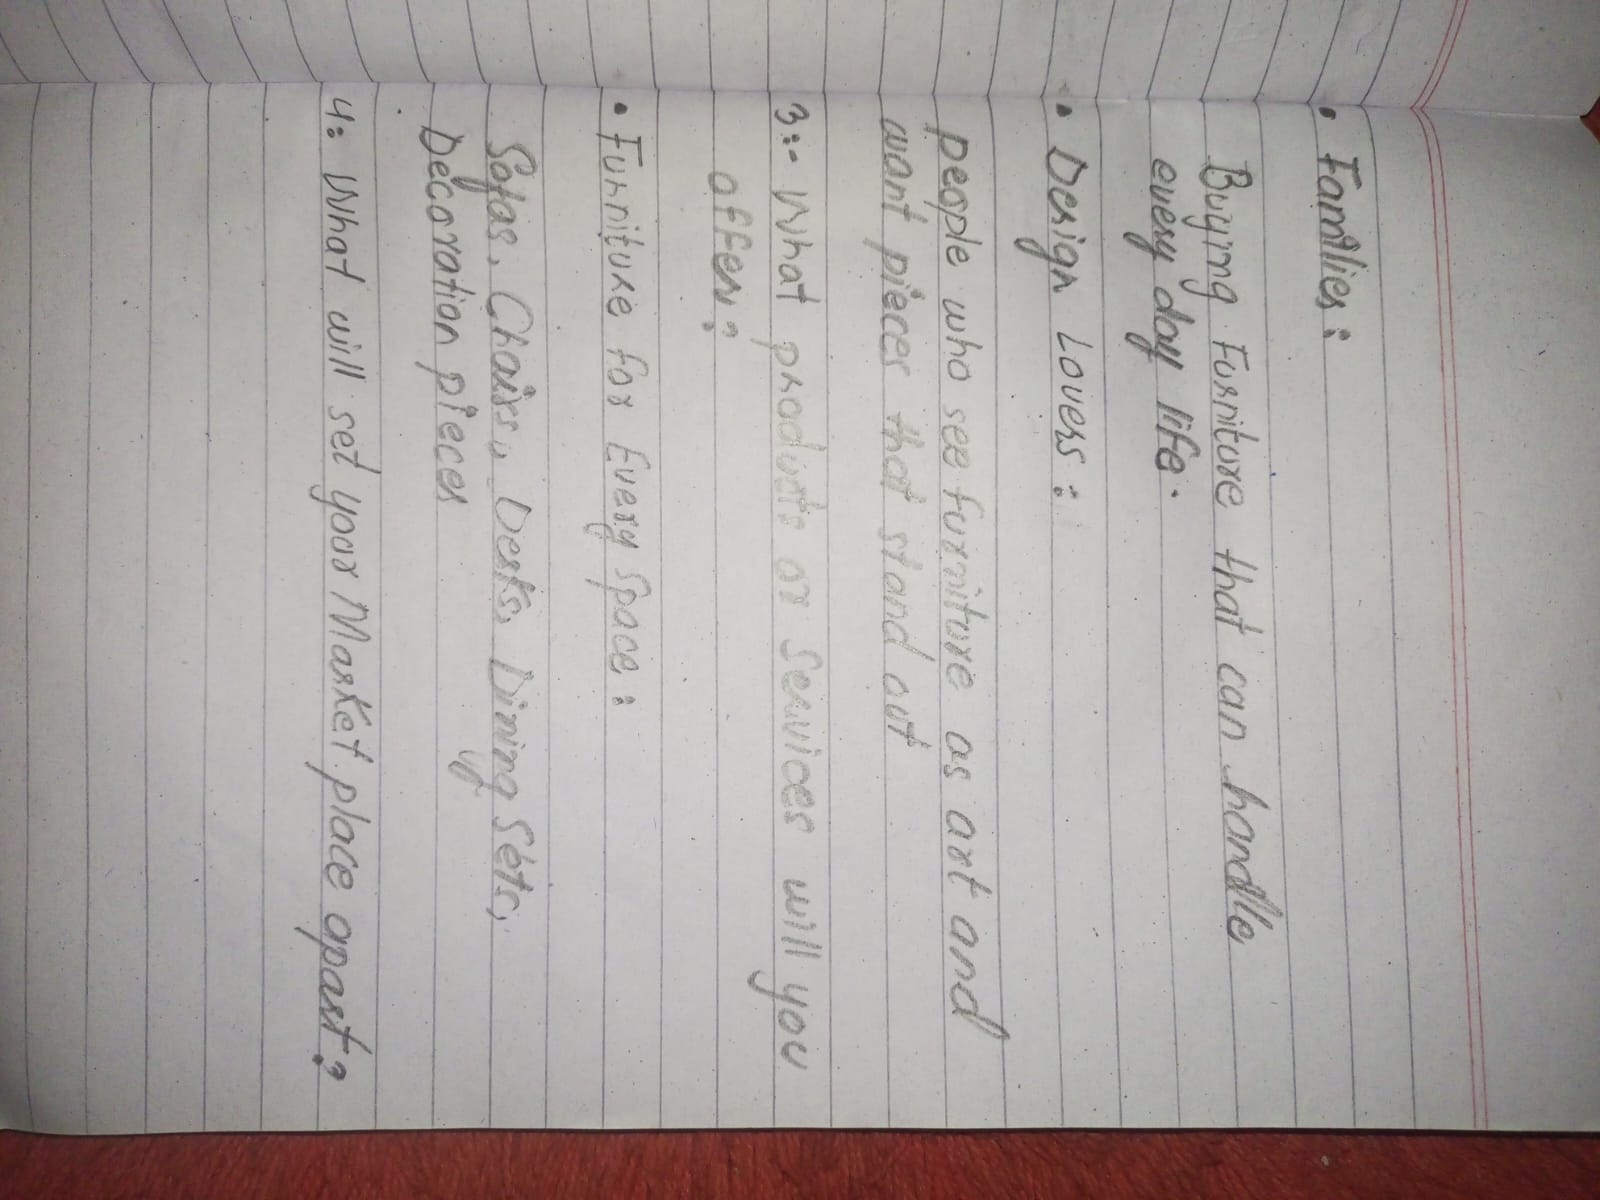 • Families:
Buying Furniture that can handle
every day life.
• Design Lovers:
people who see furniture as art and
want pieces that stand out
3:- What products or Services will you
offer?
• Furniture for Every Space:
Sofas, Chairs, Desks, Dining Sets,
Decoration pieces
4: What will set your Market place apart?